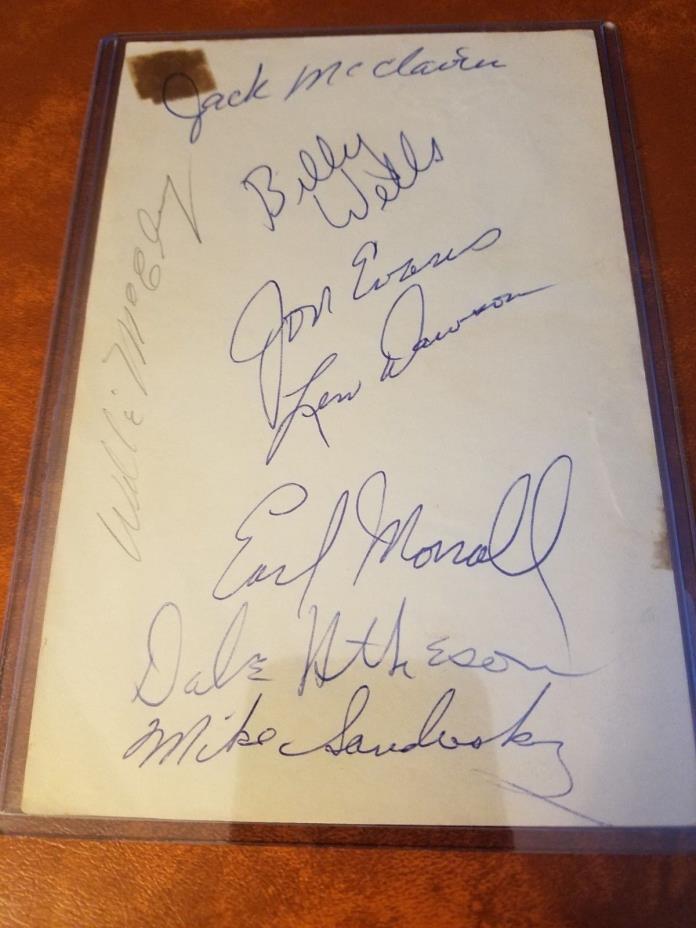 Jack McClairen
Billy
Wells
Jon Evans
Len Dawson
Earl Morrall
Dale Atkeson
Mike Sandusky
Willie